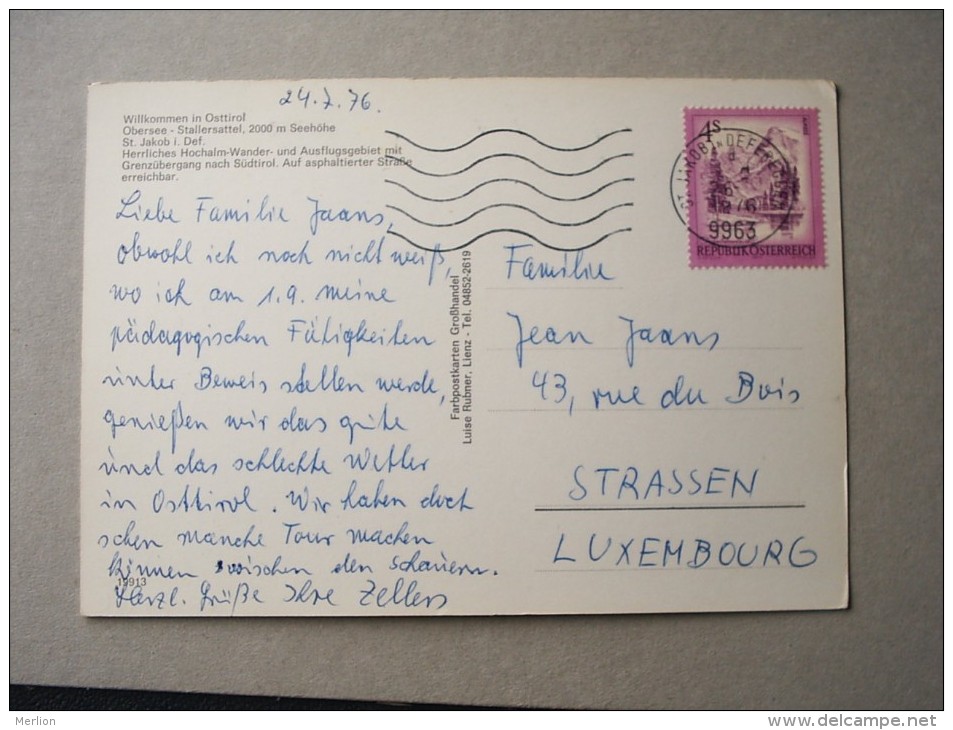 24.7.76.
Willkommen in Osttirol
Obersee - Stallersattel, 2000 m Seehöhe
St. Jakob i. Def.
Herrliches Hochalm-Wander- und Ausflugsgebiet mit
Grenzübergang nach Südtirol. Auf asphaltierter Straße
erreichbar.
Liebe Familie Jaans,
obwohl ich noch nicht weiß,
wo ich am 1.9. meine
pädagogischen Fähigkeiten
unter Beweis stellen werde,
genießen wir das gute
und das schlechte Wetter
in Osttirol. Wir haben doch
schon manche Tour machen
können zwischen den Schauern.
19913
Herzl. Grüße Ihre Zellers
Farbpostkarten Großhandel
Luise Rubner, Lienz - Tel. 04852-2619
4S
ST. JAKOB IN DEFEREGGEN
9963
REPUBLIK ÖSTERREICH
Familie
Jean Jaans
43, rue du Bois
STRASSEN
LUXEMBOURG
Merlion
http://www.delcampe.net